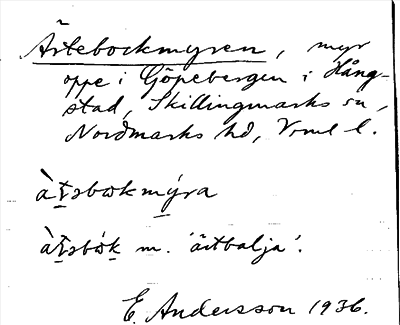 Ärtebockmyren, myr
oppe i Göpebergen i Hång-
stad, Skillingmarks sn,
Nordmarks hd, Vrml l.
àt̲sbωkmý̲ra
àt̲sbώk̲ m. 'ärtbalja'.
E. Andersson 1936.